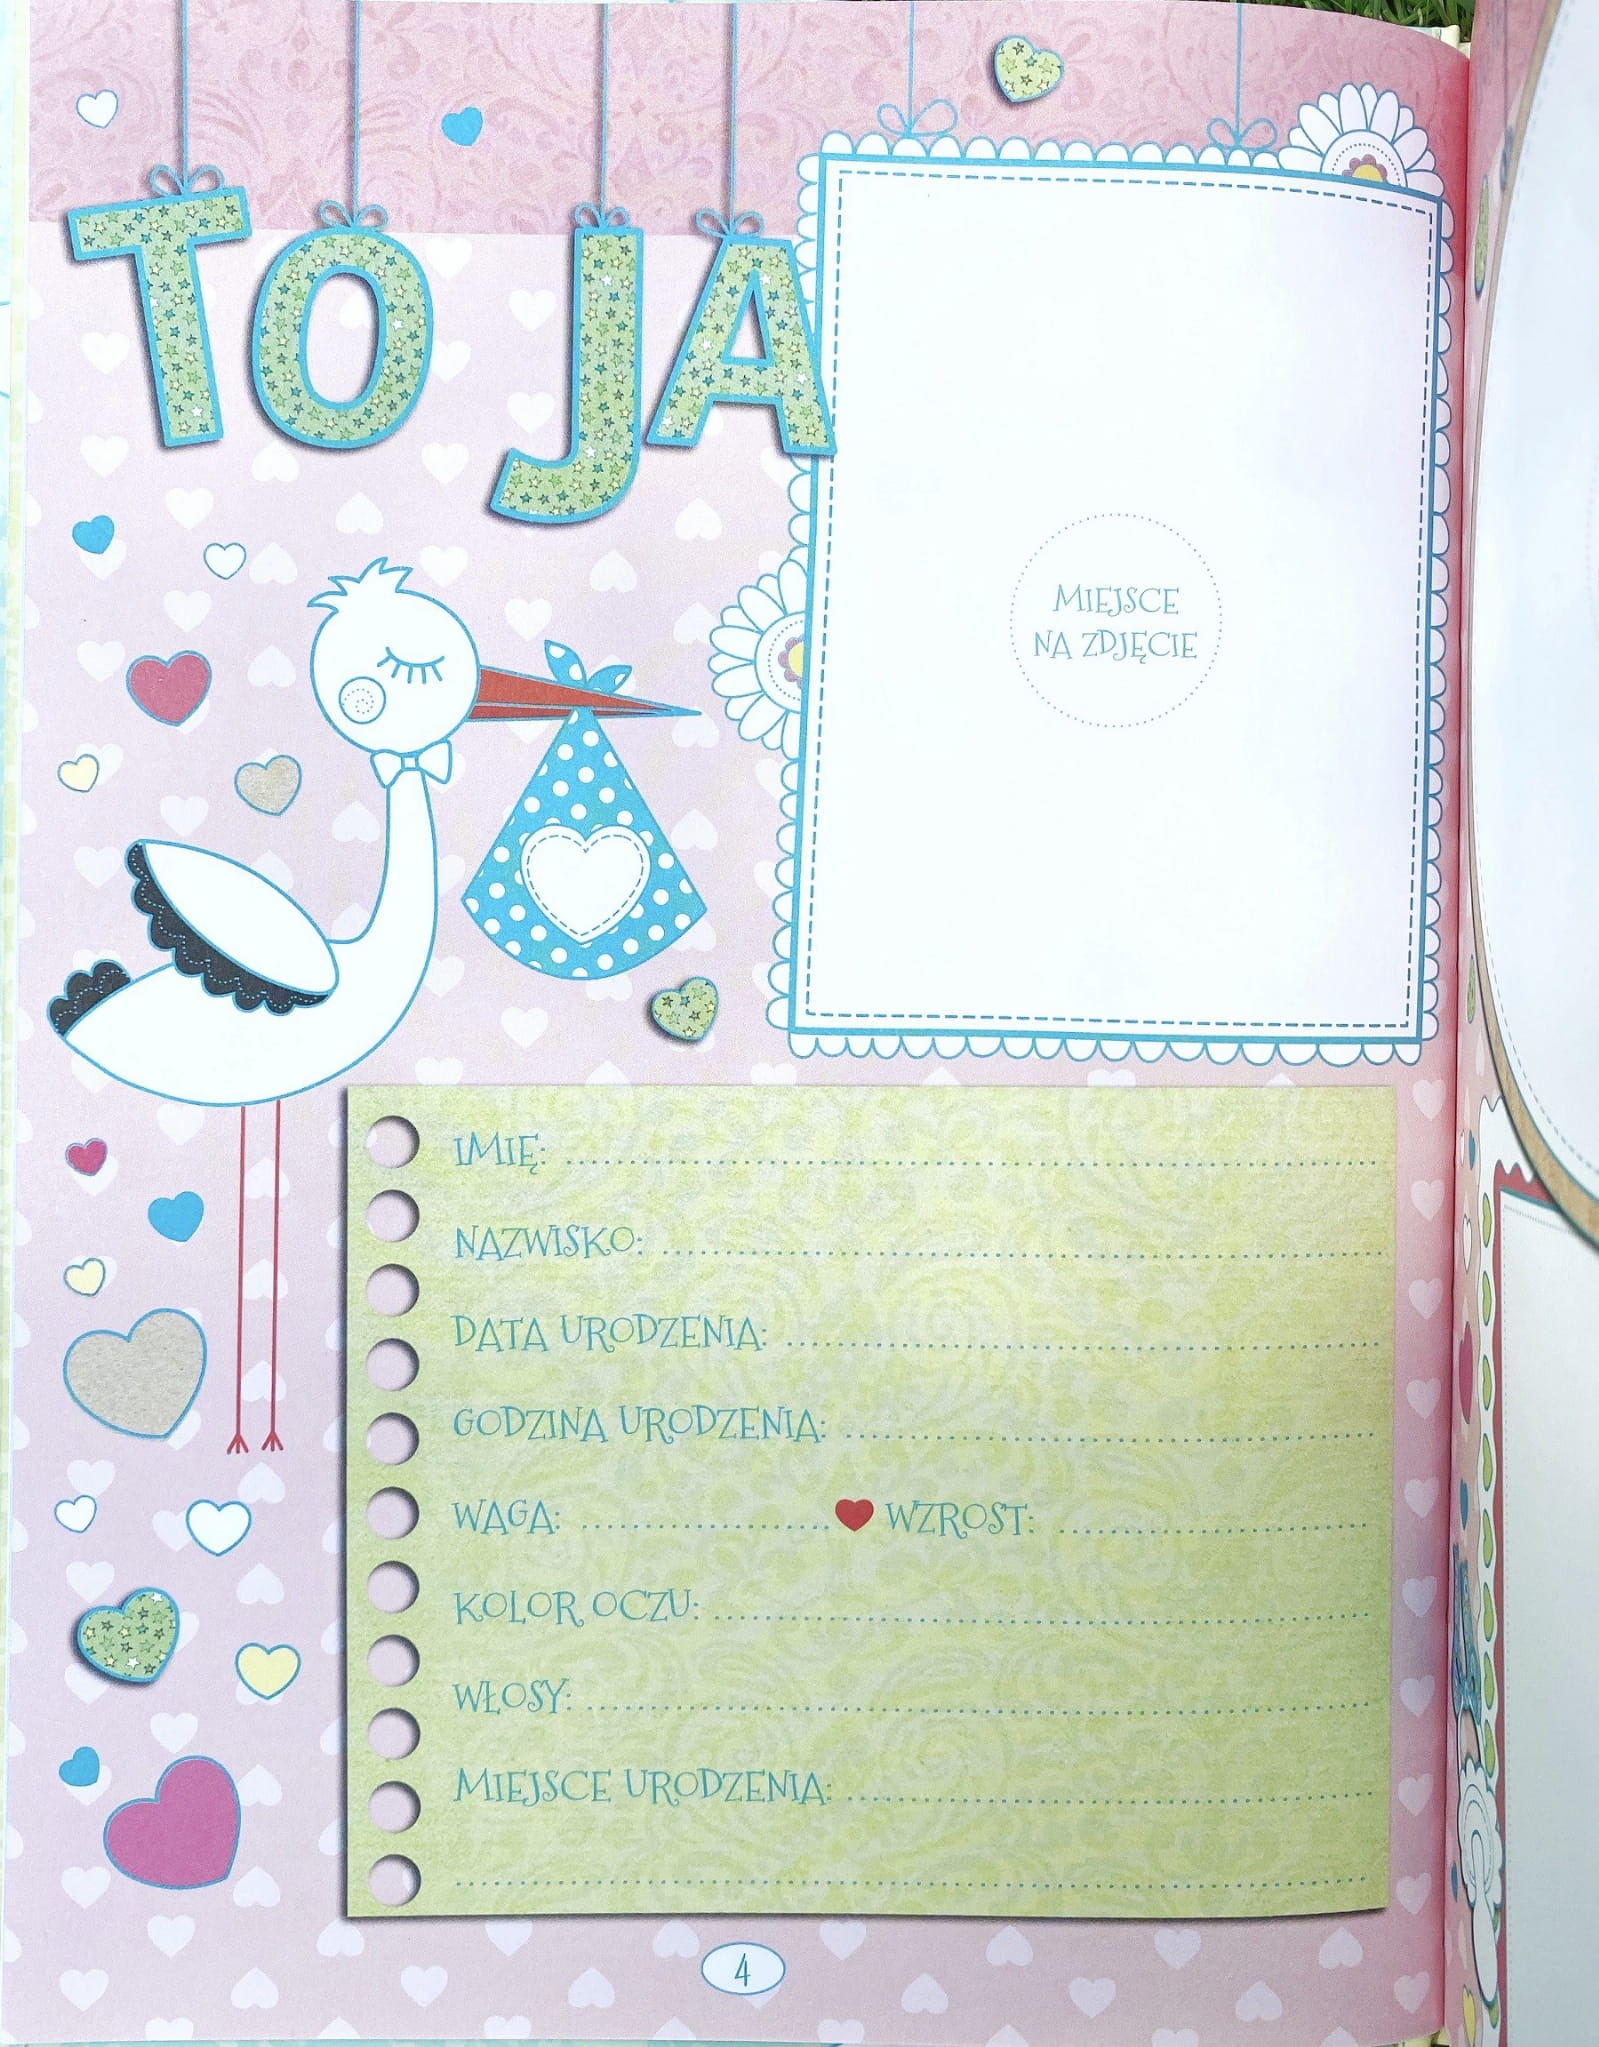 TO JA
MIEJSCE
NA ZDJĘCIE
IMIĘ:
NAZWISKO:
DATA URODZENIA:
GODZINA URODZENIA:
WAGA: WZROST:
KOLOR OCZU:
WŁOSY:
MIEJSCE URODZENIA:
4